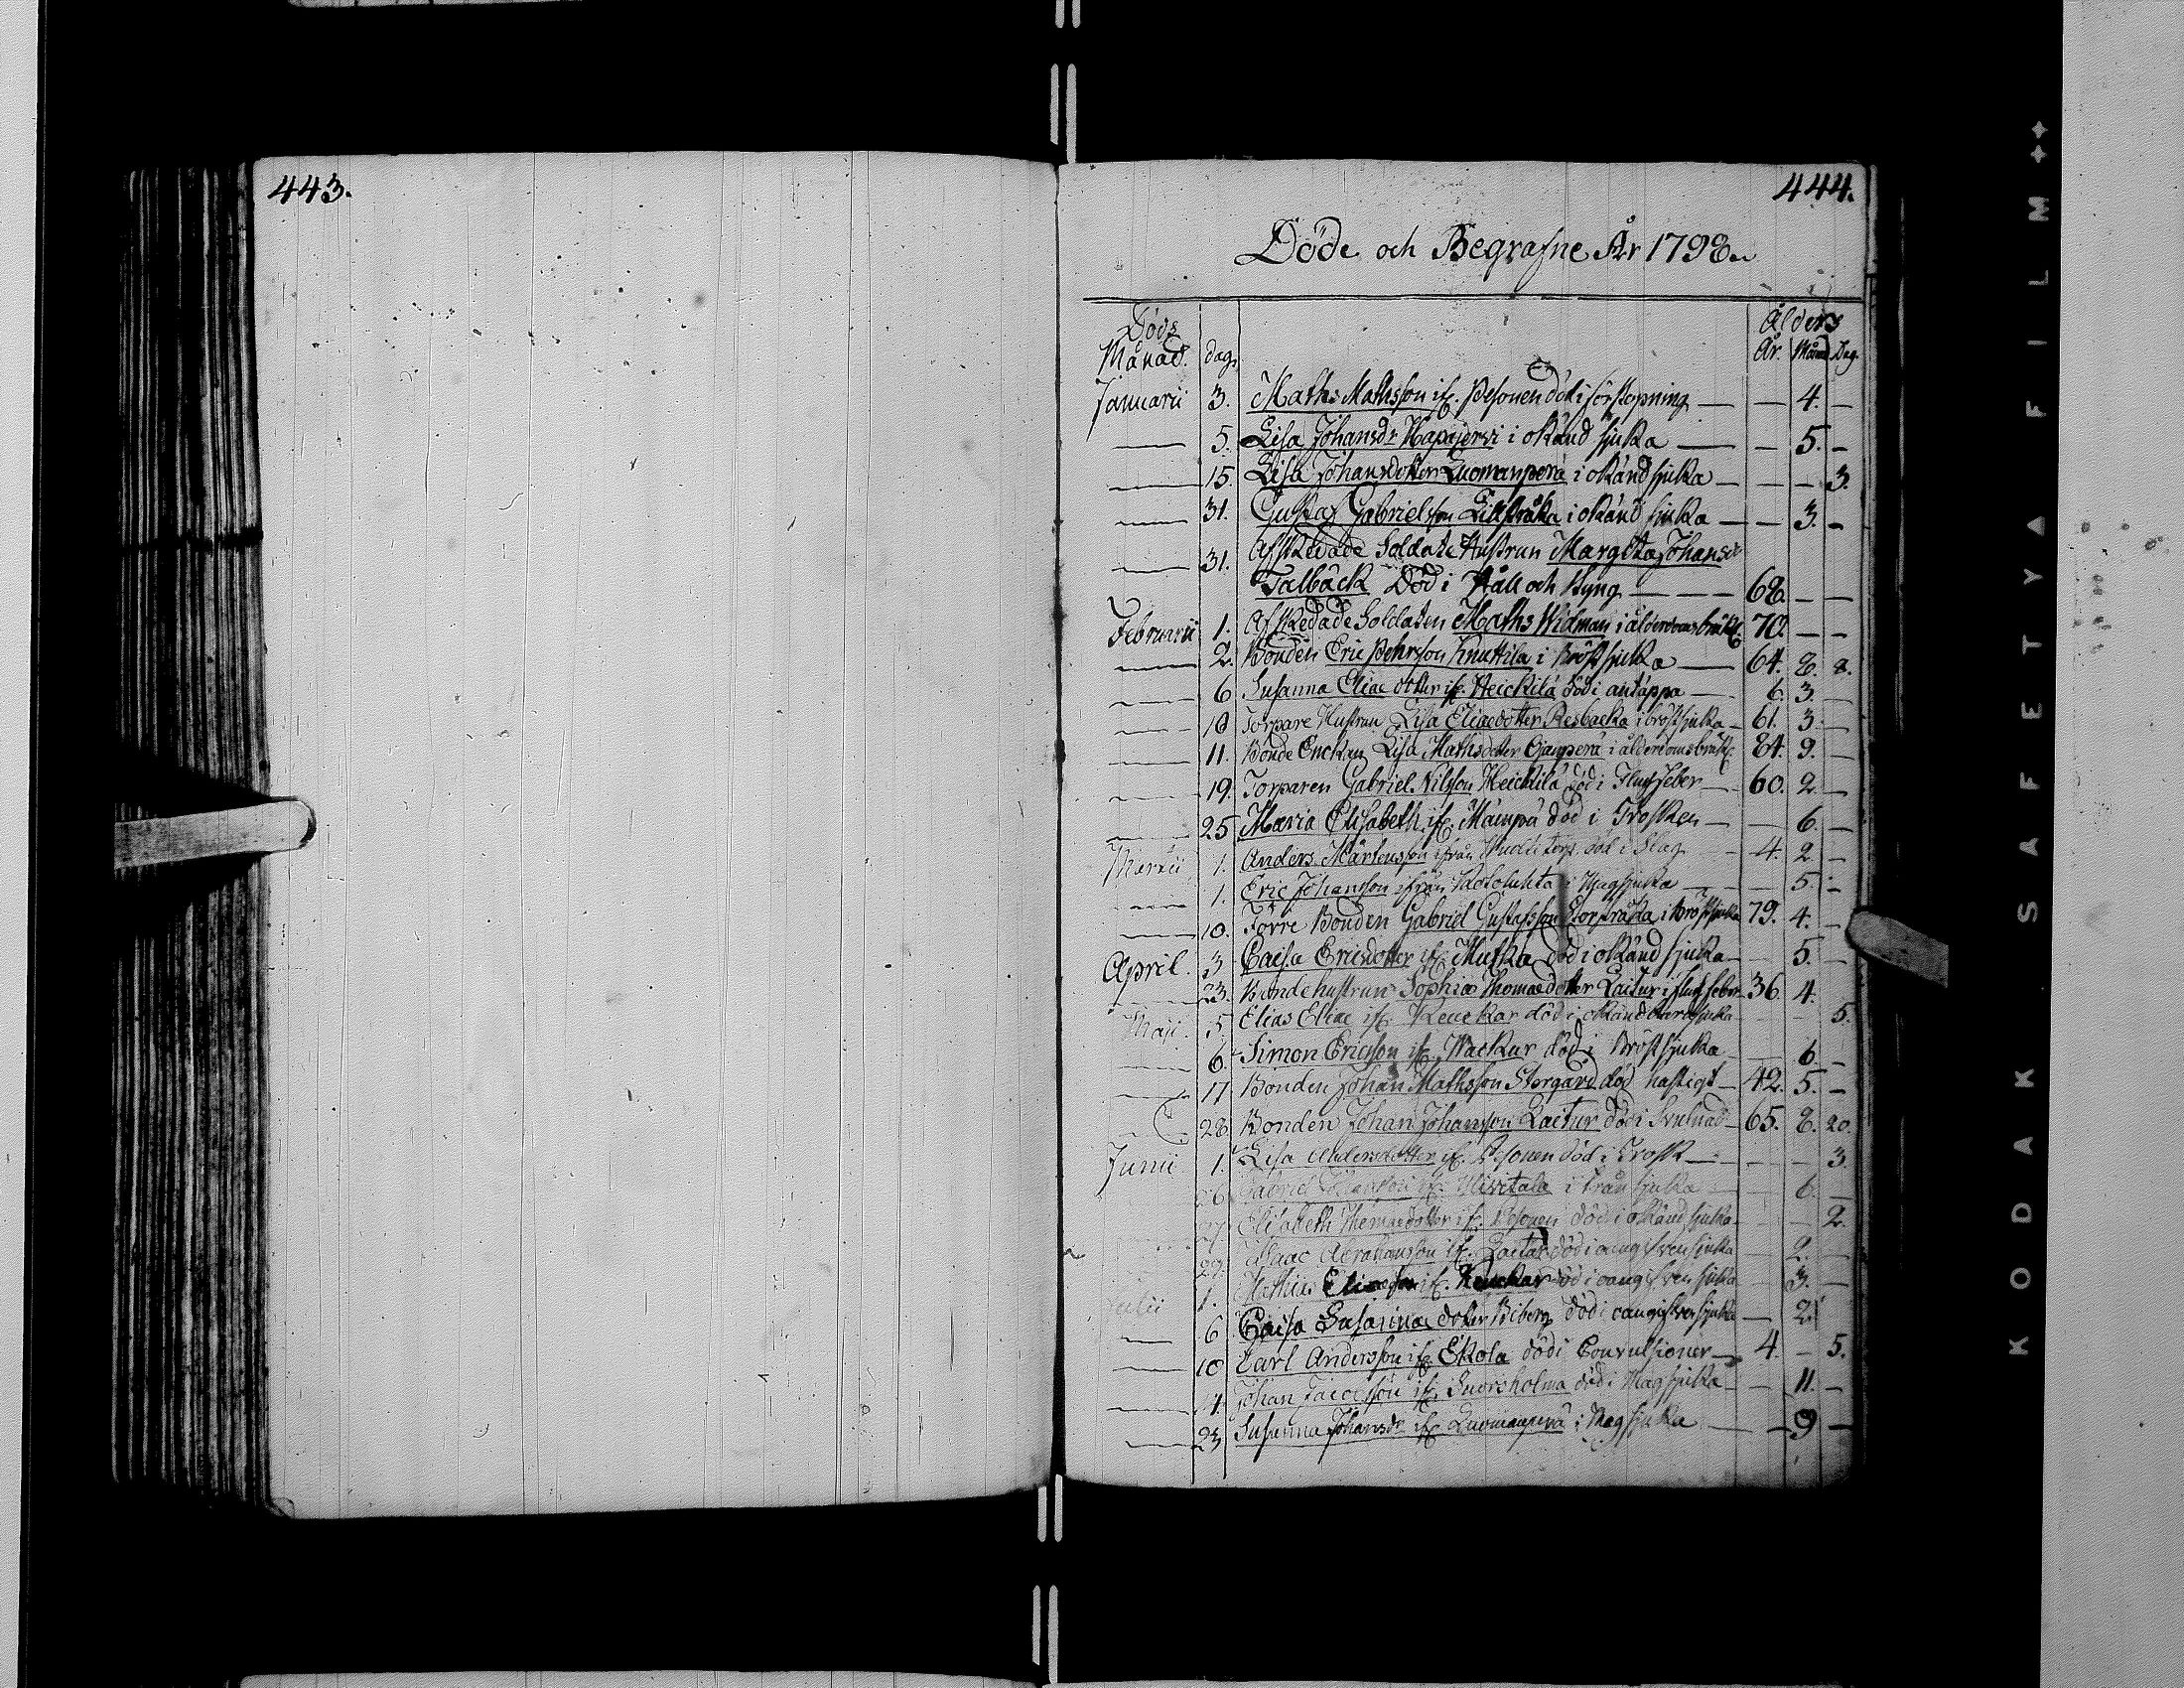 443.
444.
Döde och Begrafne År 1798.
Döds Ålders
Månad. dag. År. Månad. Dag.
Januarii 3. Maths Mathsson if. Pesonen död i förstopning — — 4. —
— 5. Lisa Johansdr Kapajervi i okänd sjuka — — 5. —
— 15. Lisa Johansdotter Luomanperä i okänd sjuka — — — 3.
— 31. Gustaf Gabrielsson Lillstråka i okänd sjuka — — 3. —
— 31. Afskedade Soldats Hustrun Margeta Johansdr
Talback Död i Håll och Styng — 68. — —
Februarii 1. Afskedade Soldaten Maths Widman i ålderdomsbräkl 70. — —
— 2. Bonden Eric Pehrsson Knuttila i Bröstsjuka — 64. 8. 8.
— 6 Susanna Eliae dotter if. Heickilä död i antäppa — 6. 3. —
— 10 Torpare Hustrun Lisa Eliaedotter Resbacka i bröstsjuka — 61. 3. —
— 11. Bonde Enckan Lisa Mathsdotter Ojanperä i ålderdomsbräkl 84. 9. —
— 19. Torparen Gabriel Nilsson Heickilä död i Flussfeber — 60. 2. —
— 25 Maria Elisabeth if. Mämpä död i Trosken — — 6. —
Martii 1. Anders Mårtensson ifrån död i Slag — 4. 2 —
— 1. Eric Johansson ifrån Kotoluhta i Hugsjuka — — 5. —
— 10. Förre Bonden Gabriel Gustafsson Storstråka i Bröstsjuka 79. 4. —
April. 3 Caisa Ericsdotter if. Mutka död i okänd sjuka — — 5. —
— 23. Bondehustrun Sophia Thomaedotter Laitur i flussfeber 36. 4.
Maji 5 Elias Eliae if. Renckar död i okänd barnsjuka — — 5.
— 6. Simon Ericsson if. Wackur död i Bröstsjuka — — 6. —
— 17 Bonden Johan Mathsson Storgård död hastigt — 42. 5. —
— 28 Bonden Johan Johansson Laitur död i Svulnad — 65. 8. 20.
Junii 1. Lisa Andersdotter if. Pesonen död i Trosk — — — 3.
26 Gabriel Johansson if. Hivitala i trånsjuka — — 6. —
27. Elisabeth Thomaedotter if. Pesonen död i okänd sjuka — — 2.
29. Isaac Abrahamsson if. Laitar död i oangifven sjuka — 2. —
Julii 1. Mathias Eliaesson if. Renckar död i oangifven sjuka — 3. —
— 6 Caisa Susanna dotter Biberg död i oangifven sjuka — 2.
— 10 Carl Andersson if. Ekola död i Convulsioner — 4. — 5.
— 14. Johan Jacobsson if. Snorsholma död i Magsjuka — — 11. —
— 23 Susanna Johansdr if. Luomanperä i Magsjuka — — 9 —
KODAK SAFETY FILM